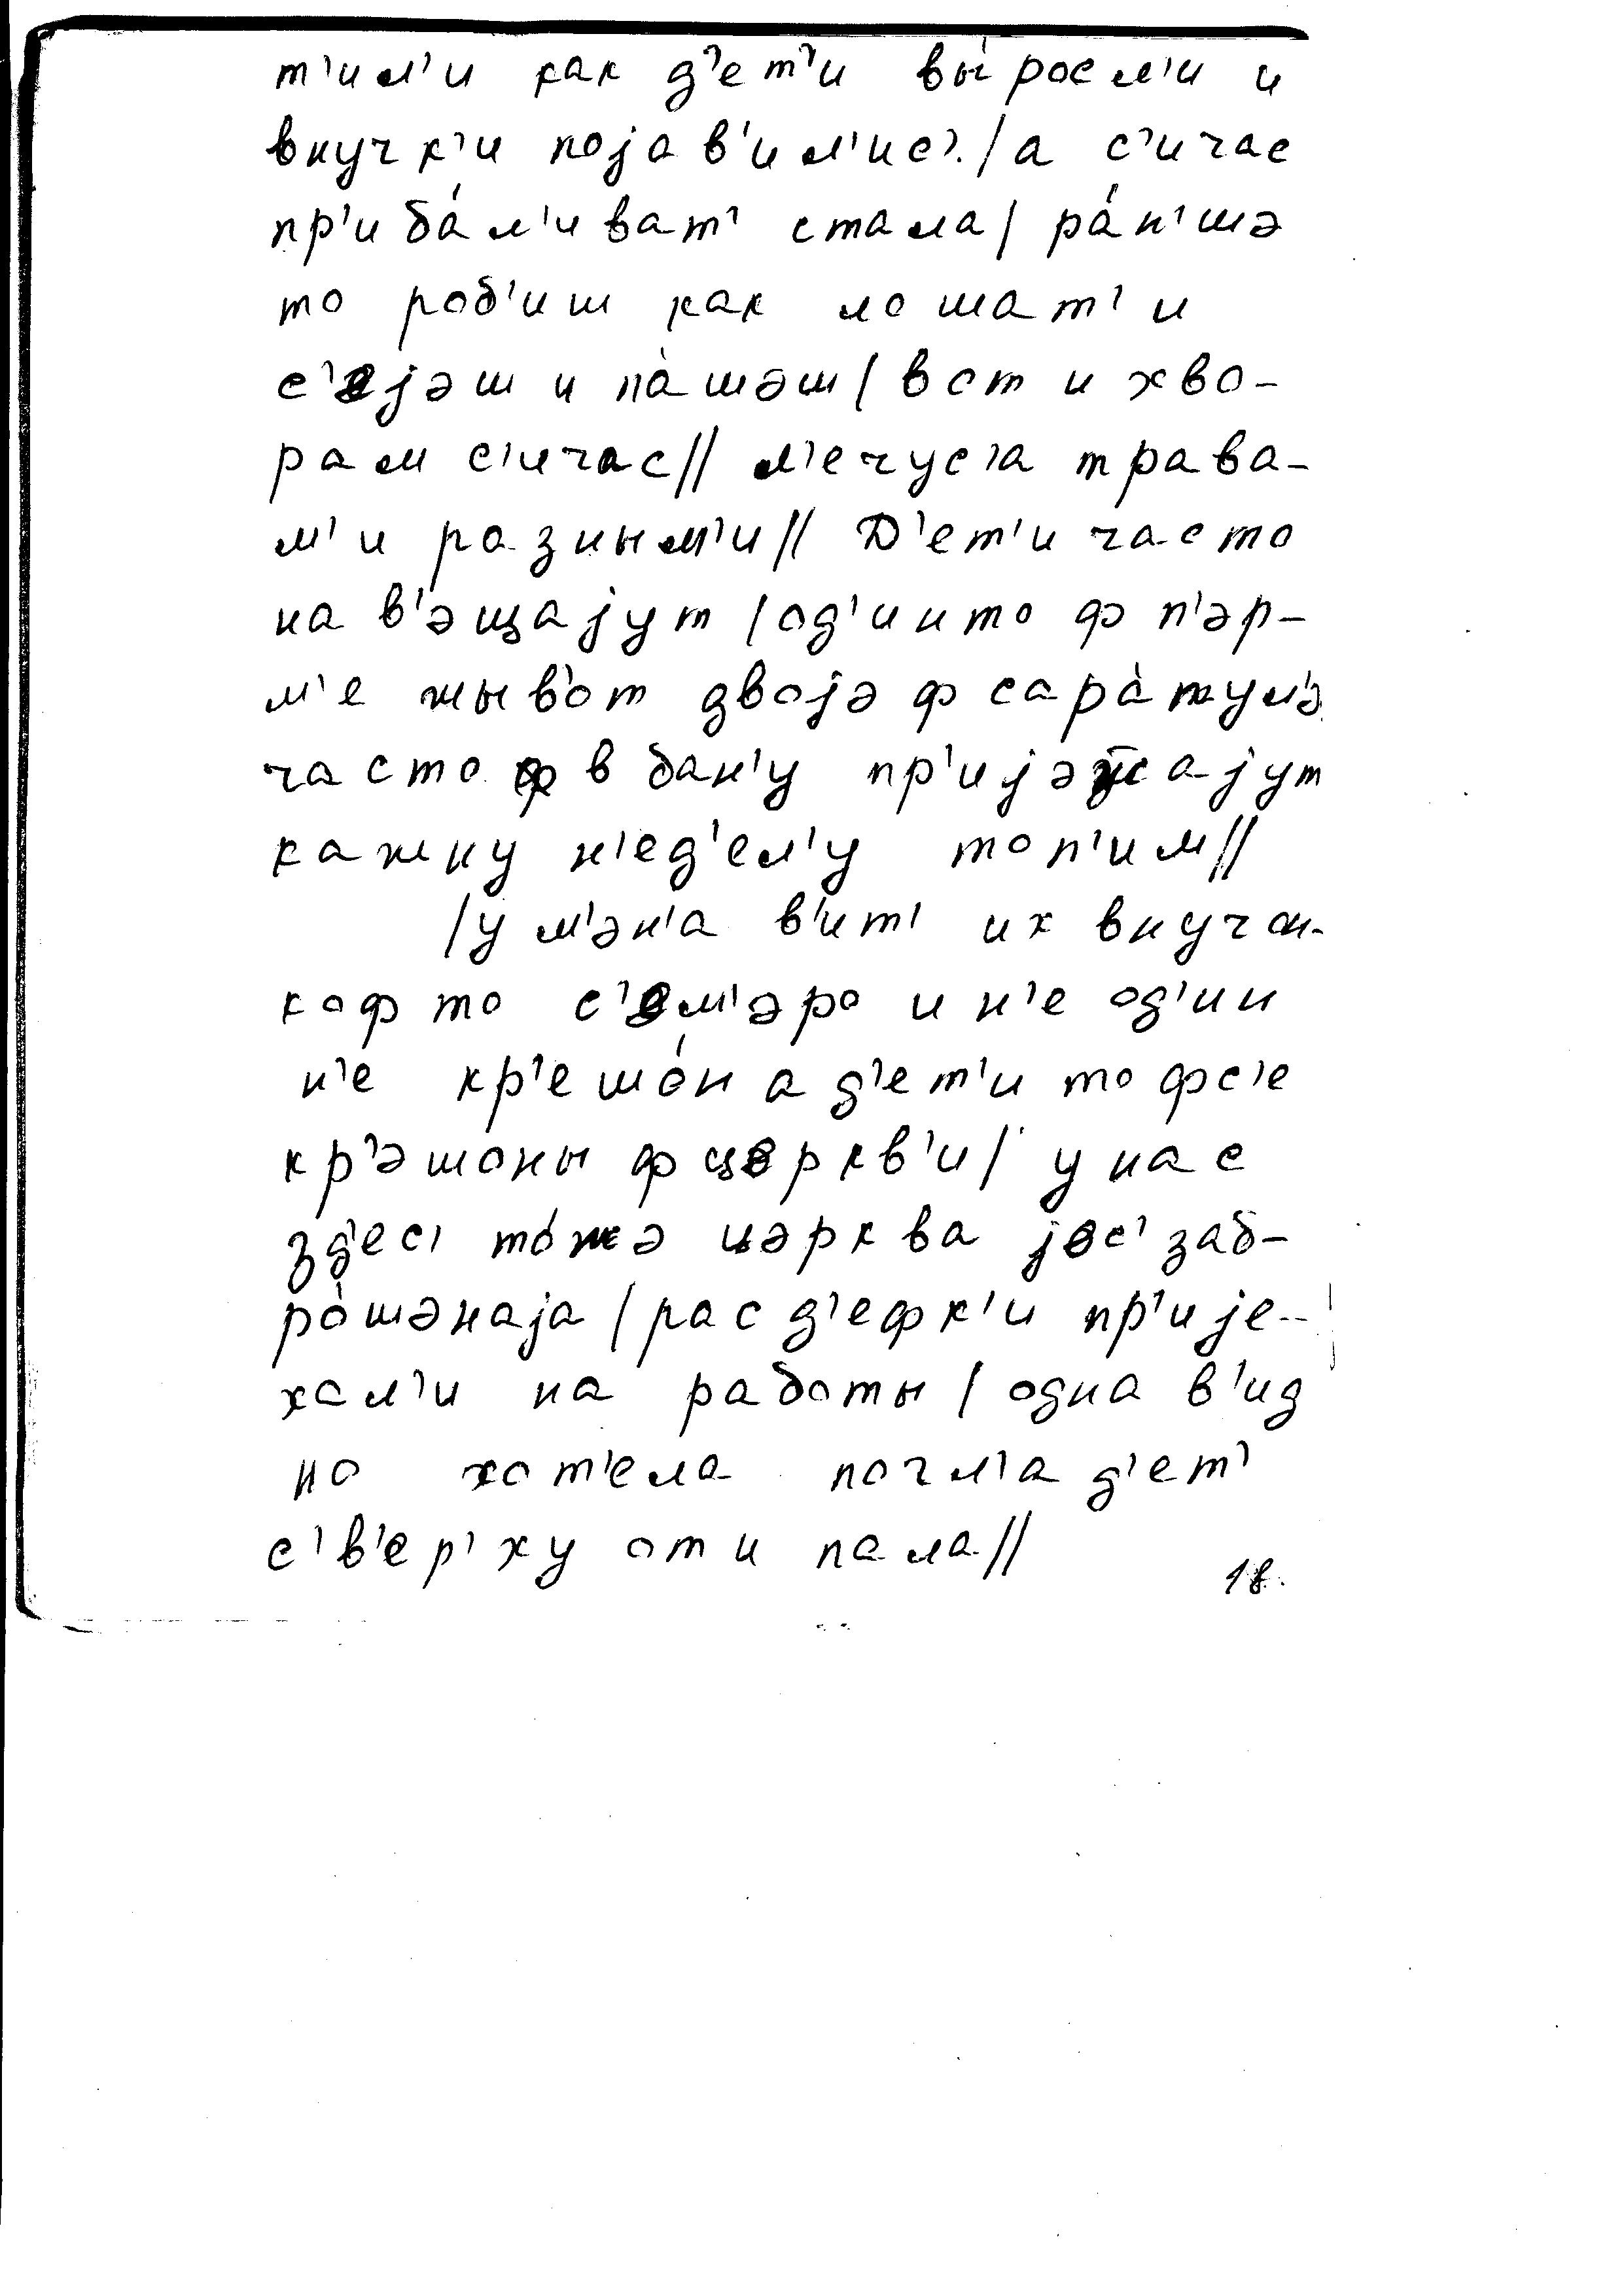 т'ил'и как д'ет'и вы́росл'и и
внучк'и појав'ил'ис'./а с'ичас
пр'иба́л'иват' стала/ ра́н'шә
то роб'иш как лошат' и
с'ејәш и па́шәш/ вот и хво-
рам с'ичас// л'ечус'а трава-
м'и разным'и// Д'ет'и часто
нав'әщајут /од'инто ф п'әр-
м'е жыв'от двојә ф сара́тул'ә
часто в бан'у пр'ијәжајут
кажну н'ед'ел'у топ'им//
/у м'ән'а в'ит' их внучә-
коф то с'ем'әро и н'е од'ин
н'е кр'ешо́н а д'ет'и то фс'е
кр'әшоны ф церкв'и/ у нас
зд'ес' то́жә цәрква јес' заб-
ро́шәнаја /рас д'ефк'и пр'ије-
хал'и на работы / одна в'ид
но хот'ела погл'а д'ет'
с'в'ер'ху от и пала//
18.